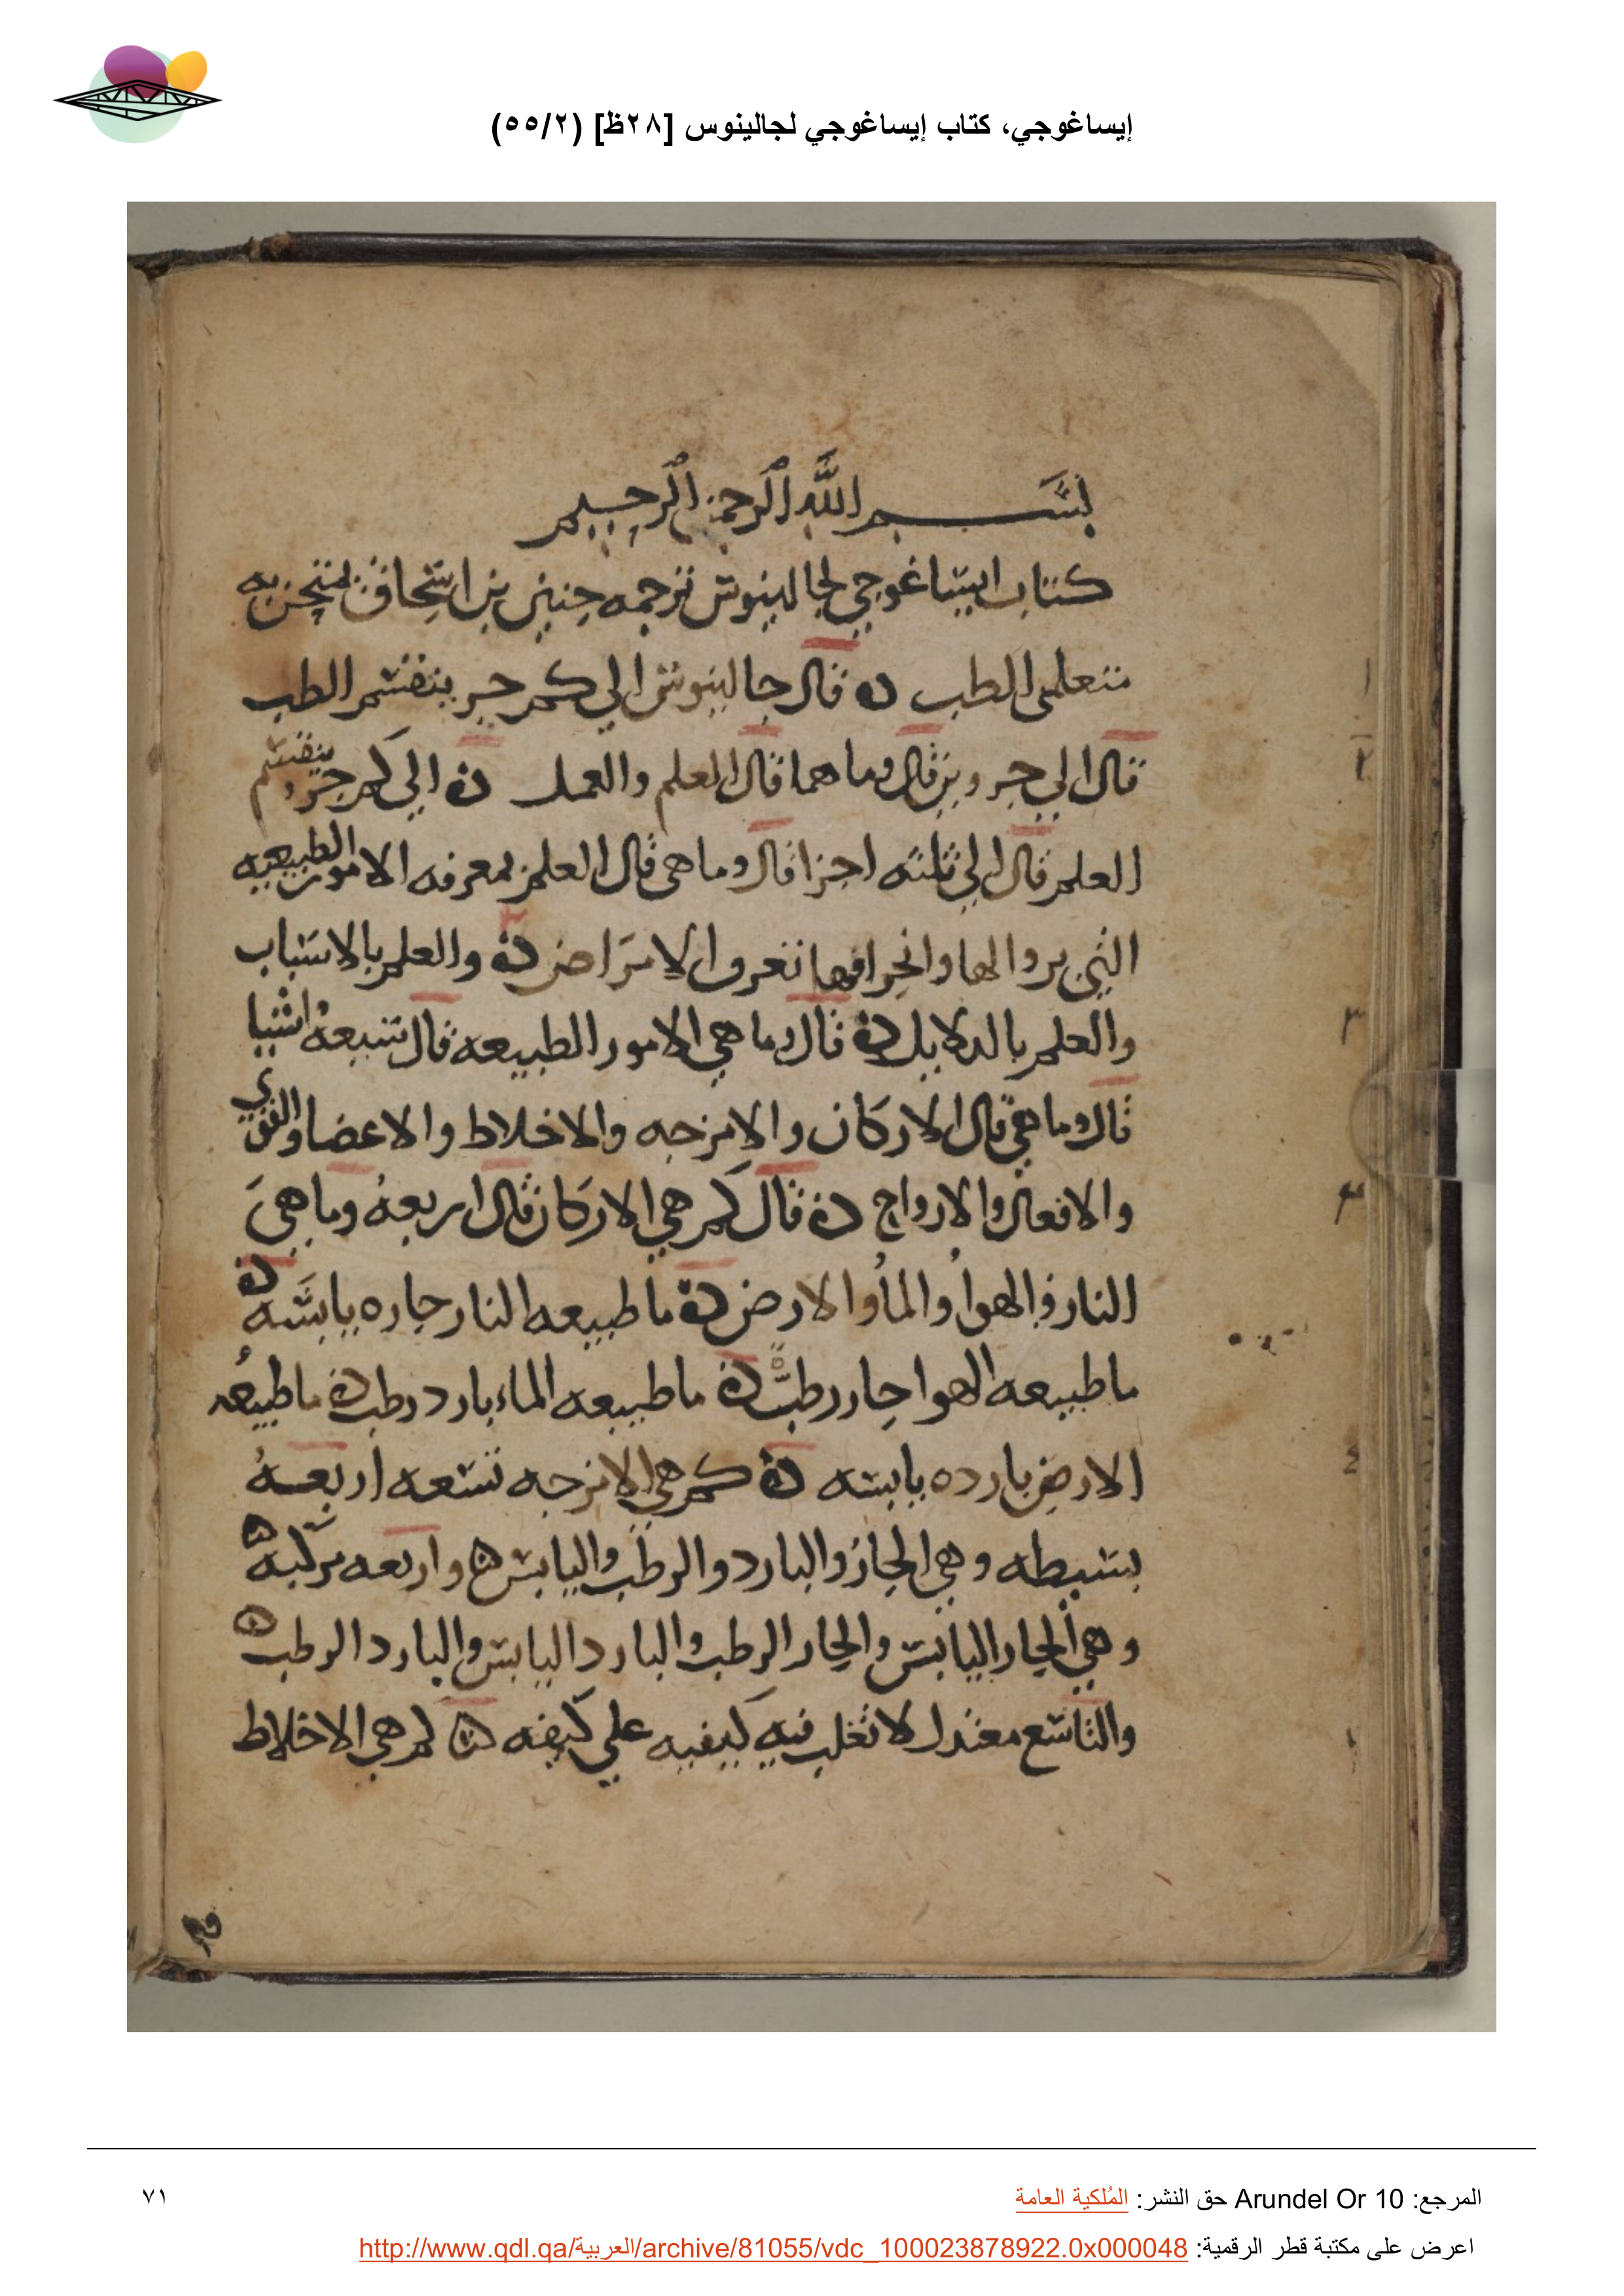 إيساغوجي، كتاب إيساغوجي لجالينوس [٢٨ظ] (٥٥/٢)
بسم الله الرحمن الرحيم
كتاب ايساغوجي لجالينوس ترجمه حنين بن اسحاق يمتحن به
متعلمي الطب ٥ قال جالينوس الي كم جز ينقسم الطب
قال الي جزوين قال وما هما قال العلم والعمل ٥ الي كم جزو ينقسم
العلم قال الي ثلثه اجزا قال وما هي قال العلم بمعرفه الامور الطبيعيه
التي بزوالها وانحرافها تعرف الامراض ٥ والعلم بالاسباب
والعلم بالدلايل ٥ قال وما هي الامور الطبيعه قال سبعه اشيا
قال وما هي قال الاركان والامزجه والاخلاط والاعضا والقوي
والافعال والارواح ٥ قال كم هي الاركان قال اربعه وما هي
النار والهوا والما والارض ٥ ما طبيعه النار حاره يابسه ٥
ما طبيعه الهوا حار رطب ٥ ما طبيعه الماء بارد رطب ٥ ما طبيعه
الارض بارده يابسه ٥ كم هي الامزجه تسعه اربعه
بسيطه وهي الحار والبارد والرطب واليابس ٥ واربعه مركبه ٥
وهي الحار اليابس والحار الرطب والبارد اليابس والبارد الرطب ٥
والتاسع معتدل لا تغلب فيه كيفيه علي كيفه ٥ كم هي الاخلاط
المرجع: Arundel Or 10 حق النشر: المُلكية العامة
٧١
اعرض على مكتبة قطر الرقمية: http://www.qdl.qa/العربية/archive/81055/vdc_100023878922.0x000048